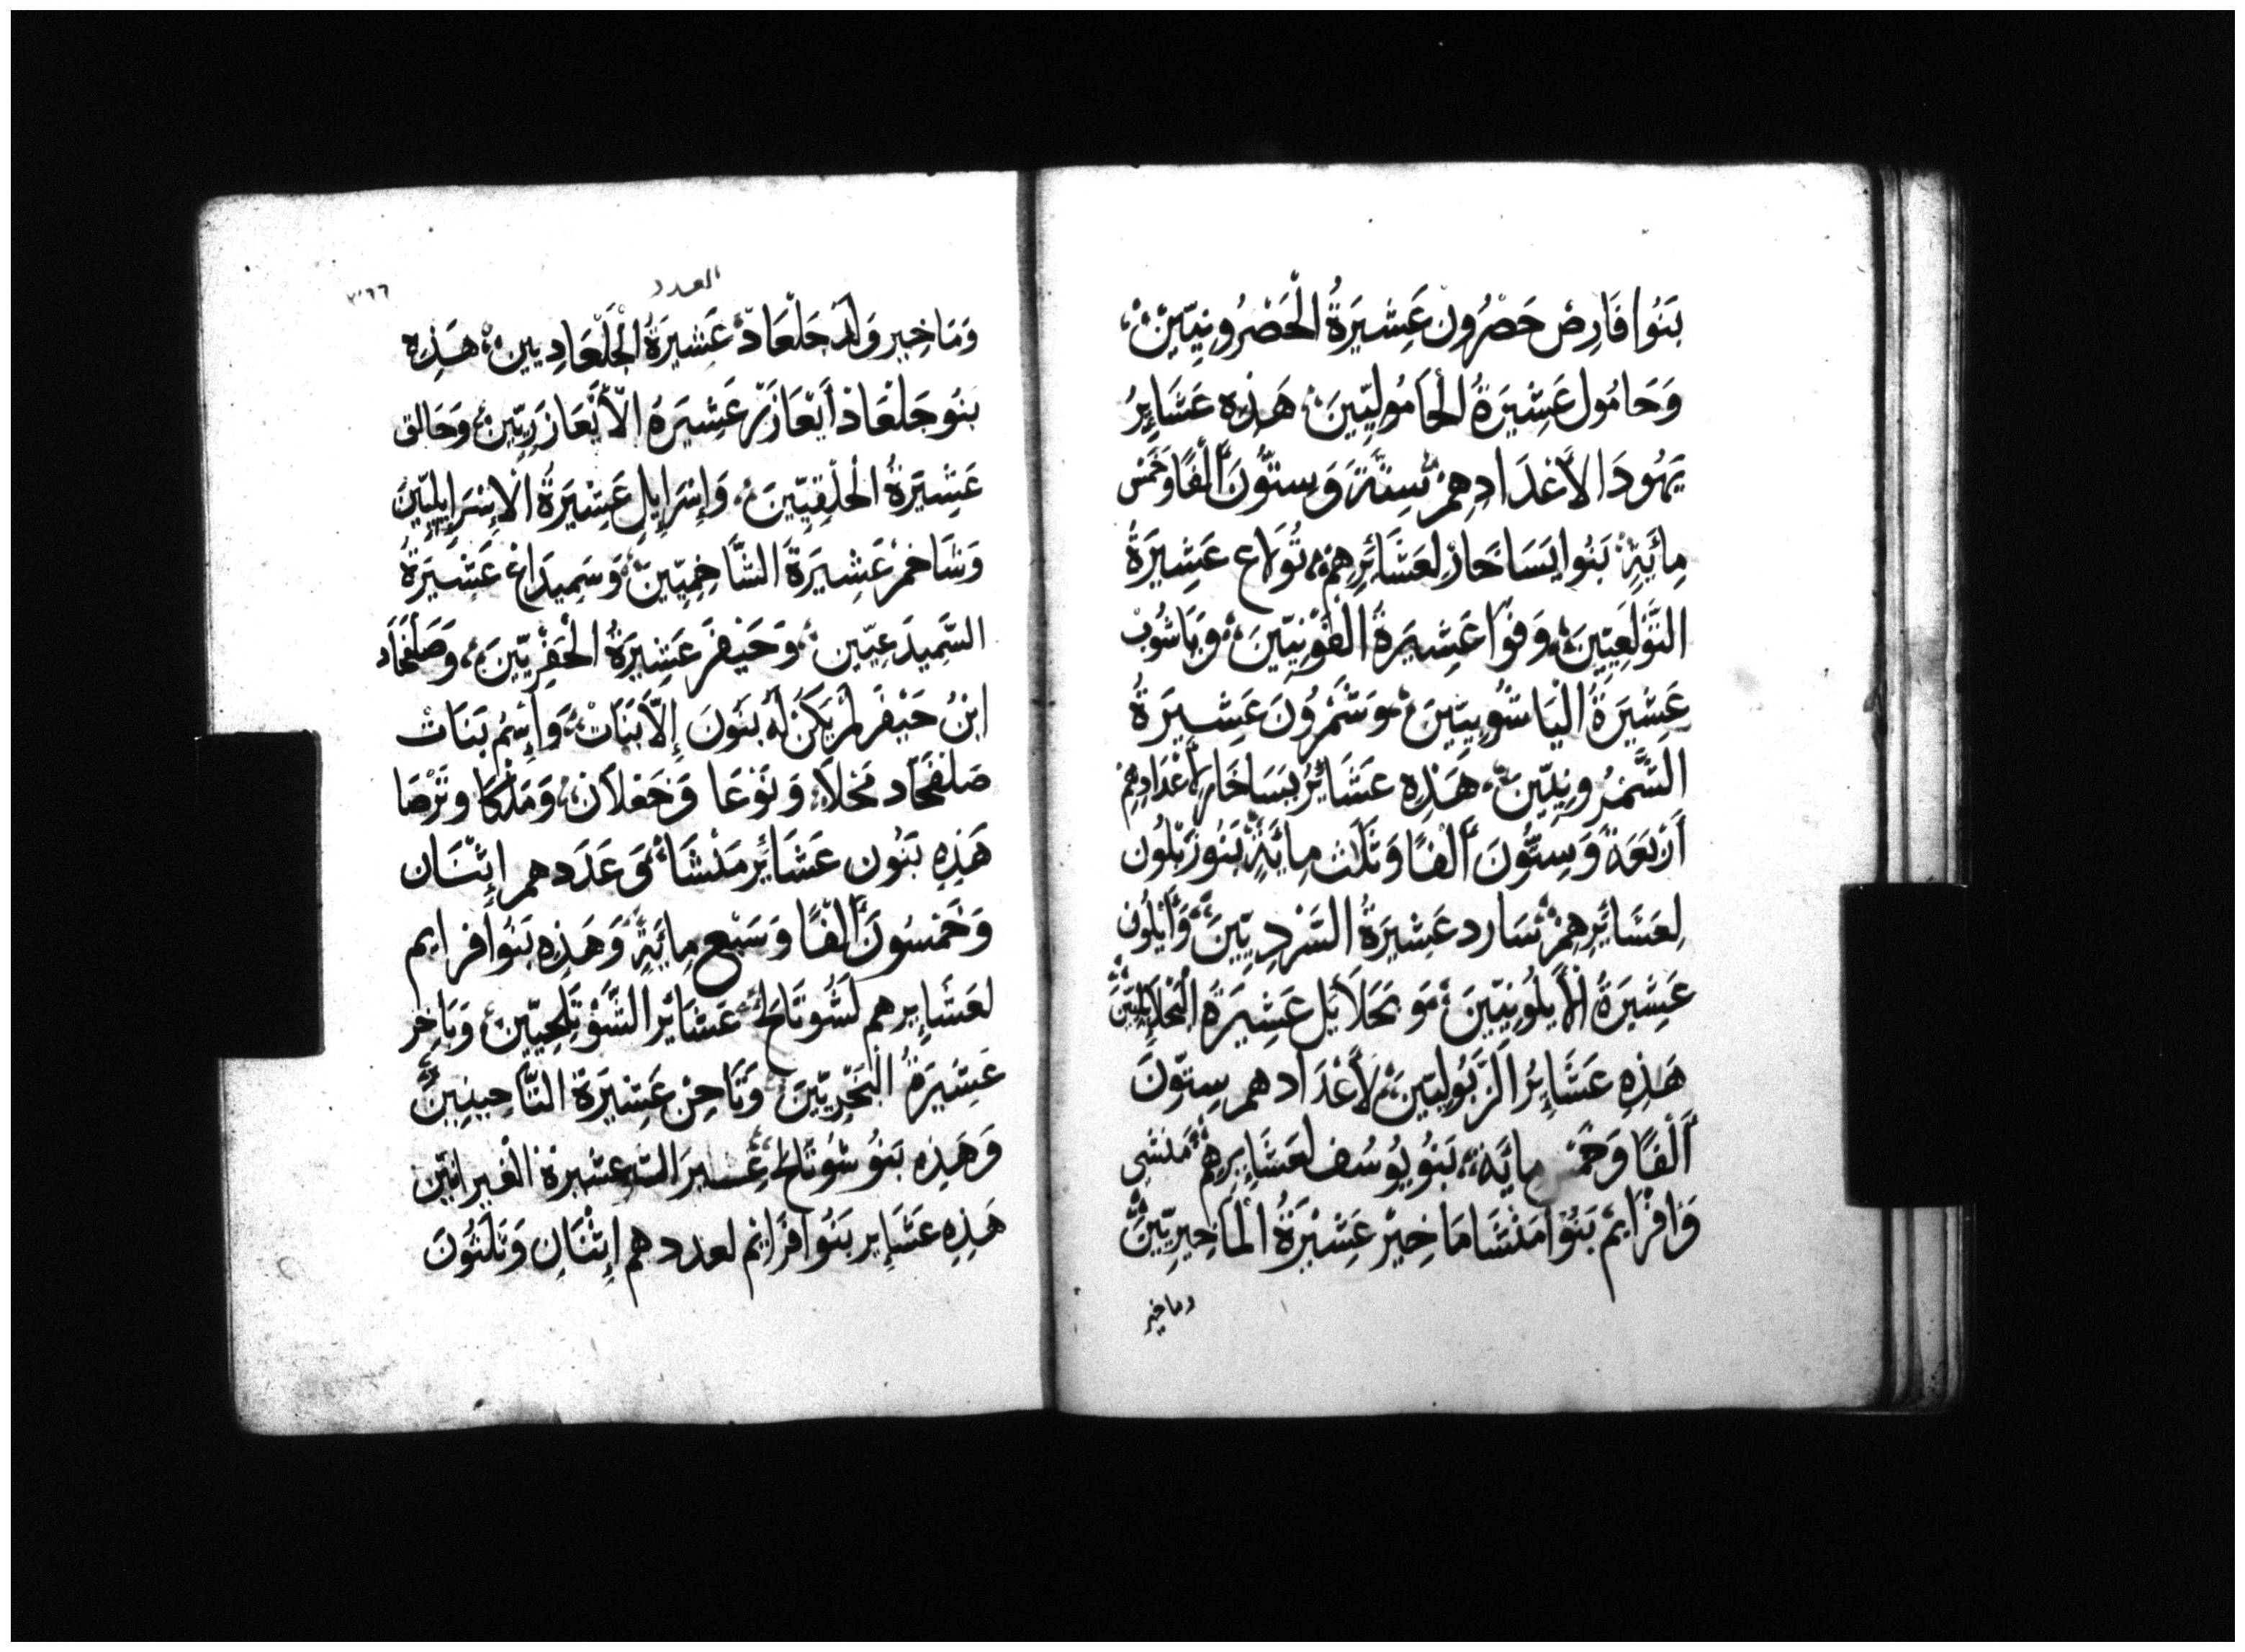 بَنُوا فَارِصْ حَصْرُونْ عَشِيرَةُ الْحَصْرُونِيّيْنْ
وَحَامُول عَشِيْرَةُ الْحَامُولِيّيِنَ هَذِهِ عَشَايِرُ
يَهُودَا لأَعْدَادِهِمْ سِتَّةَ وَسِتُّونَ أَلْفًا وَخَمْسْ
مِائَيَةٍ بَنُوا يَسَاخَارْ لِعَشَائِرِهِمْ تُولاع عَشِيرَةُ
التَّوْلَعِيّيِنَ وَفوَا عَشِيرَةُ الفَوْنِيّيِنَ وَيَاشُوبْ
عَشِيْرَةُ الْيَاشُوبِيّينَ وَشَمْرُونَ عَشِيرَةُ
الشَّمْرُونِيّينَ هَذِهِ عَشَائِرُ يسَاخَار لأَعْدَادِهِمْ
أَرْبَعَةُ وَسِتُّونَ أَلْفًا وَثَلَث مِائَيَةٍ بَنُو زَبُلُون
لِعَشَائِرِهِمْ سَارد عَشِيرَةُ السَّرْدِيّيِنَ وَأَيْلُون
عَشِيْرَةُ الأَيلُونِيّيِنَ وَ نَحَلاَيل عَشِيرَةُ النَّحْلاَيِلِيّيْنَ
هَذِهِ عَشَايِرُ الزَّبُولِيّيِنَ لأَعْدَادهم سِتّونَ
أَلْفًا وَخَمْس مايَة بَنُو يُوسُف لعَشَايِرِهِمْ مَنَشى
وَافْرَايمْ بَنُوا مَنْشَا مَاخِيْرْ عَشِيْرَةُ الْمَاخِيرِيّيِنَ
وماخير
العدد
وَمَاخِير وَلَدَ جَلْعَادْ عَشِيرَةُ الْجَلْعَادِيين هَذِهِ
بَنُو جَلْعَاذ أَيْعَازَرْ عَشِيرَةُ الأَيْعَازَرِيّيِنْ وَحَالق
عَشِيْرَةُ الْحَلْقِيّيِنَ وَإِسْرَايِل عَشِيْرَةُ الإِسْرَايِلِيّيِنَ
وَشَاخمْ عَشِيرَةُ الشَّاخِمِيّيِنْ وَسَمِيدَاعْ عَشِيْرَةُ
السَّمِيدَعِيّيِن وَحَيْفرَ عَشِيرَةُ الْحَفْرِيّيِنَ وَصَلْفَحَاد
ابْنُ حَيْفَر لَمْ يَكُنْ لَهُ بَنُونَ إِلاّ بَنَاتْ وَإِسْمُ بَنَاتْ
صَلفَحَاد مَحْلاَ وَنَوْعَا وَحَغْلاَنْ وَمَلْكَا وتَرْصَا
هَذِهِ بَنُون عَشَائِر مَنْشَا وَ عَدَدهم إِثْنَان
وَخَمْسُونَ أَلْفًا وَسَبْع مِايَةٍ وَهَذِهِ بَنُوا افرايم
لعَشَايِرهم لَشُوتَالح عَشائَر الشَّوْتَلَحِيّيِنْ وَبَاخِر
عَشِيْرَةُ الْبَخْرِيّيِنَ وَتَاحِنْ عَشِيْرَةُ التَّاحِنِيِينَ
وَهَذِه بَنُو شُوتَالح عشيرة الغيرانيّين
هَذِهِ عَشَاير بَنُوا افْرَايْم لعددهم إِثْنَانِ وَثَلَثُونَ